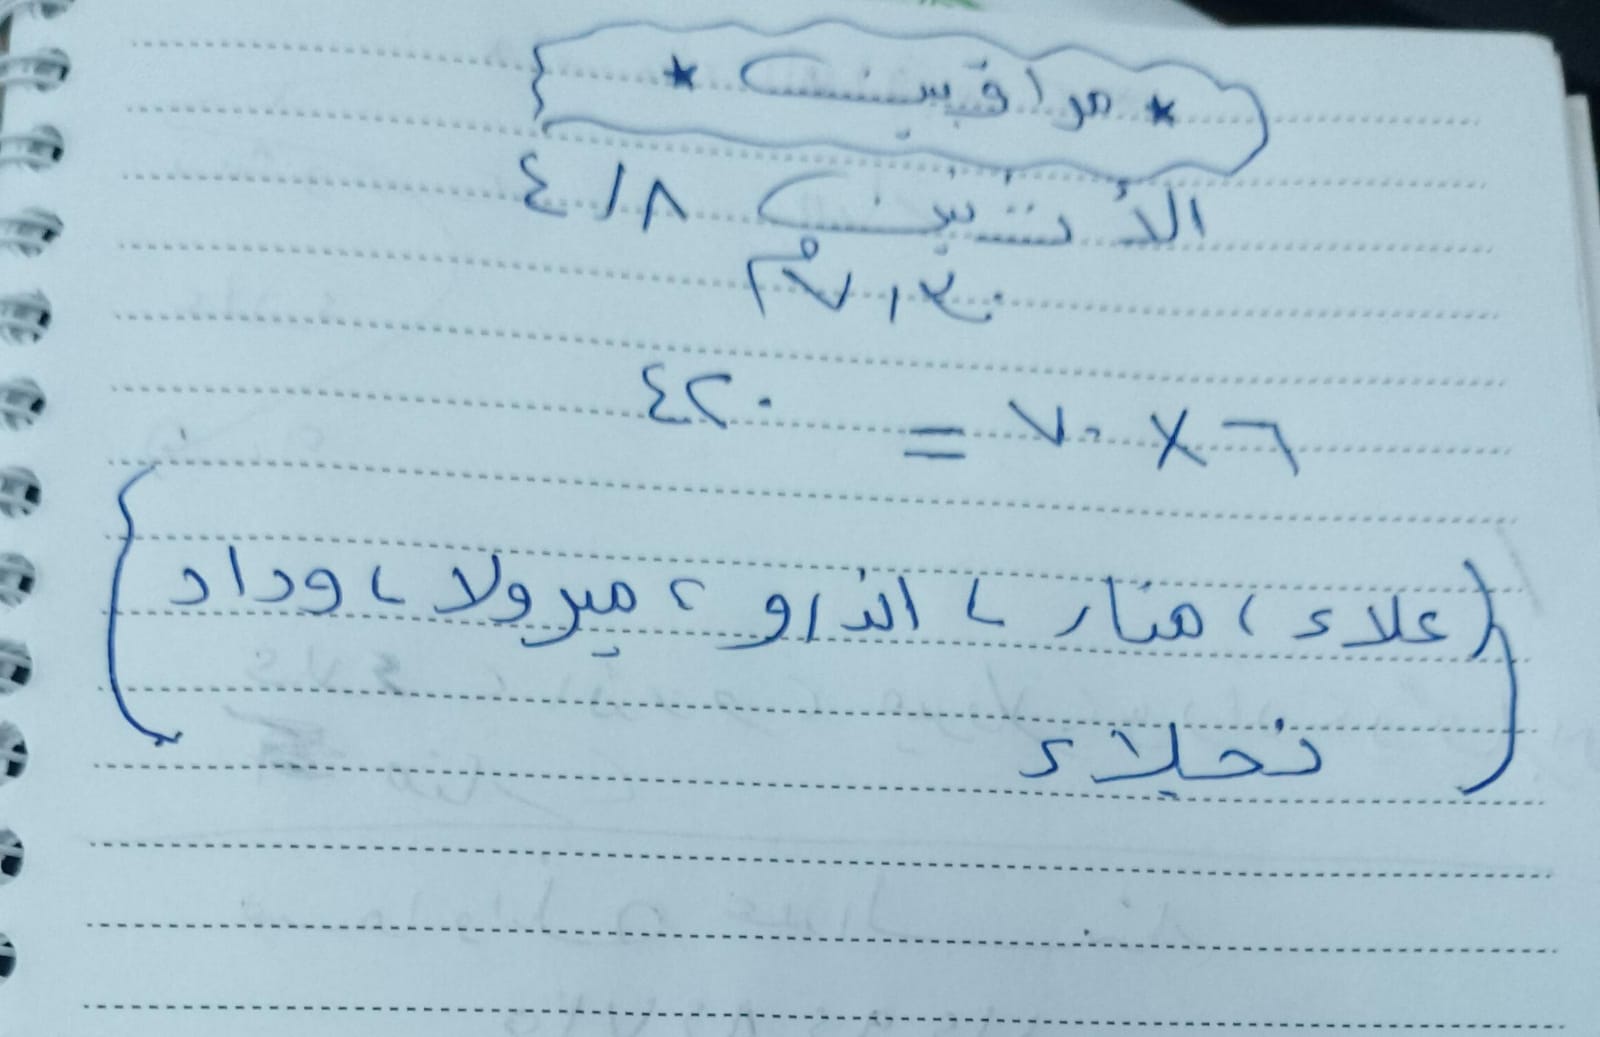 * مواقيت *
الأثنين ٤/٨
٧,٣٠ م
٦ × ٧٠ = ٤٢٠
(علاء، منار، اندرو، ميرولا، وداد
نجلاء)